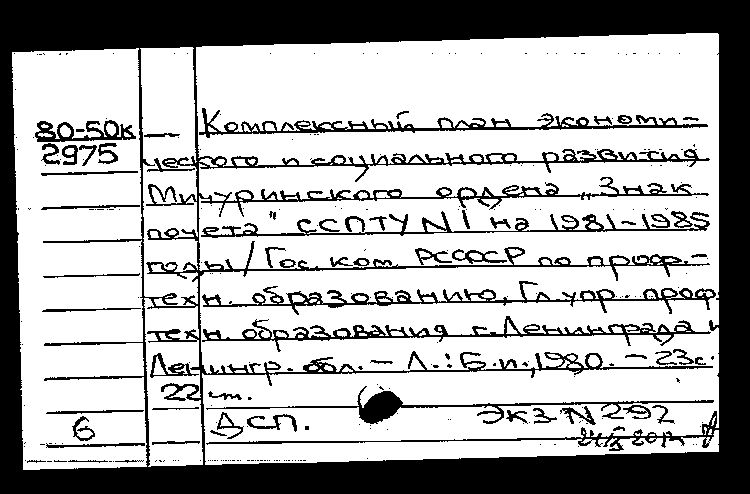 80-50к
2975
— Комплексный план экономи-
ческого и социального развития
Мичуринского ордена „Знак
почета" ССПТУ N 1 на 1981-1985
годы/Гос. ком. РСФСР по проф.-
техн. образованию, Гл. упр. проф.
техн. образования г. Ленинграда и
Ленингр. обл. – Л.: Б.и., 1980. – 23с.
22 
6 ДСП. Экз N 292